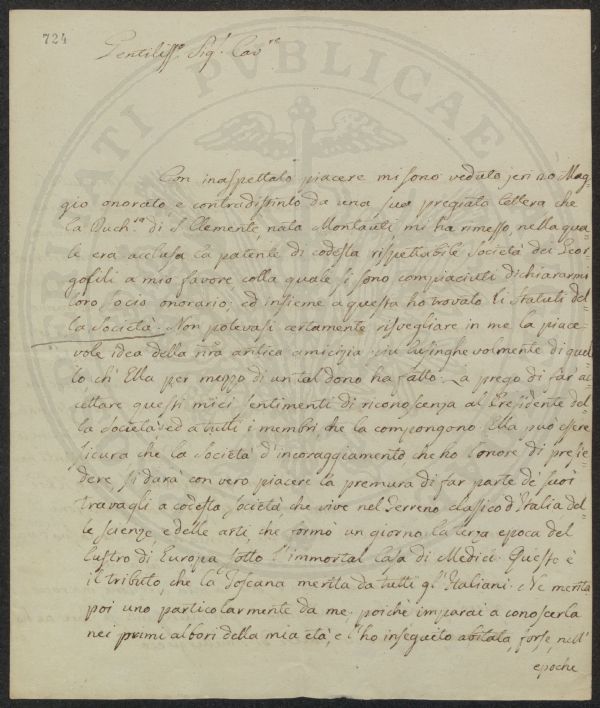 724
Gentiliss.º Sig.r Cav.re
Con inaspettato piacere mi sono veduto jeri 20 Mag=
gio onorato, e contradistinto da una sua pregiata lettera che
la Duch.ssa di S. Clemente, nata Montauti mi ha rimesso, nella qua
le era acclusa la patente di codesta rispettabile Società dei Geor=
gofili a mio favore colla quale si sono compiaciuti dichiararmi
loro socio onorario: ed insieme a questa ho trovato li Statuti del=
la Società. Non potevasi certamente risvegliare in me la piace=
vole idea della nřa antica amicizia più lusinghevolmente di quel
lo ch'Ella per mezzo di un tal dono ha fatto. La prego di far ac=
cettare questi miei sentimenti di riconoscenza al Presidente del=
la Società, ed a tutti i membri, che la compongono. Ella può essere
sicura che la Società d'incoraggiamento che ho l'onore di presie=
dere, si darà con vero piacere la premura di far parte de' suoi
travagli a codesta Società, che vive nel terreno classico d'Italia del=
le scienze, e delle arti, che formò un giorno la terza epoca del
lustro di Europa sotto l'immortal Casa di Medici. Questo è
il tributo, che la Toscana merita da tutti gl'Italiani. Ne merita
poi uno particolarmente da me, poichè imparai a conoscerla
nei primi albori della mia età, e l'ho inseguito abitata, forse, nell'
epoche
PVBLICAE